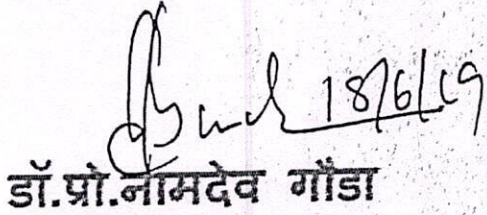 18/6/19
डॉ.प्रो.नामदेव गौडा